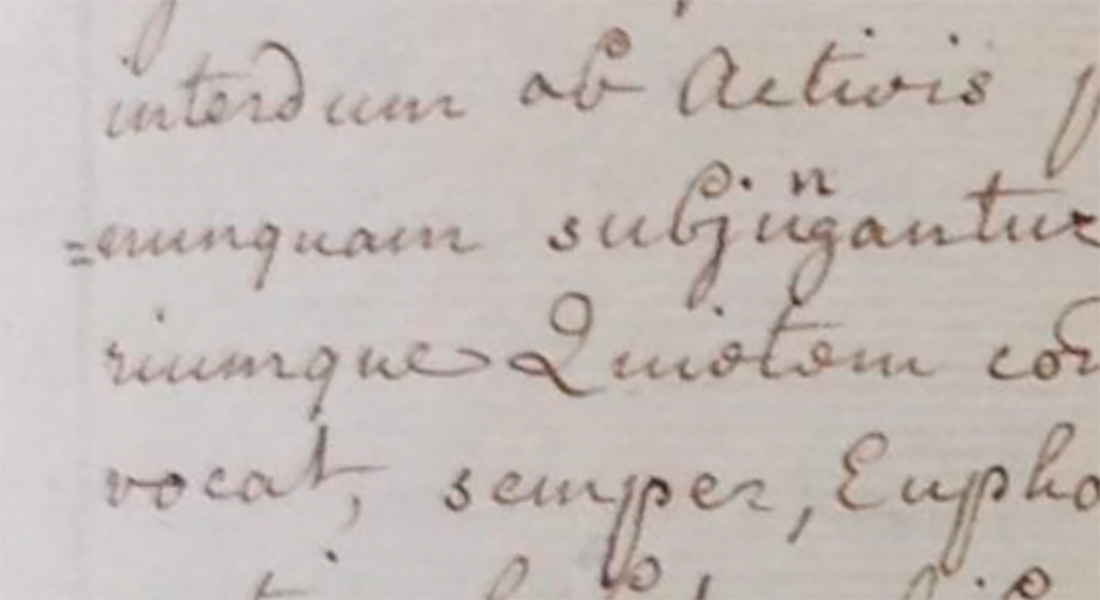 interdum ab Activis
=nunquam subjungantur
riumque Quietem
vocat, semper, Eupho